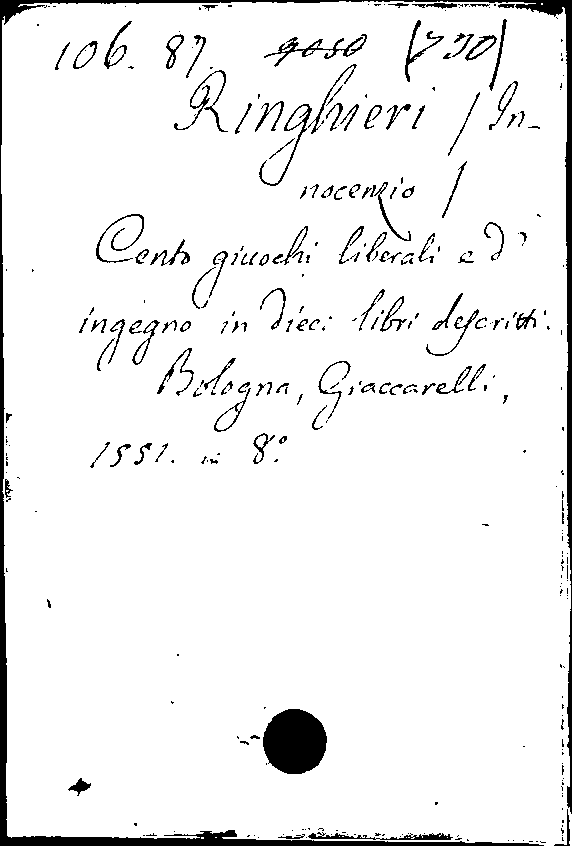 106. 87. (730)
Ringhieri / In-
nocenzio /
Cento giuochi liberali e d'
ingegno in dieci libri descritti.
Bologna, Giaccarelli,
1551. in 8.°